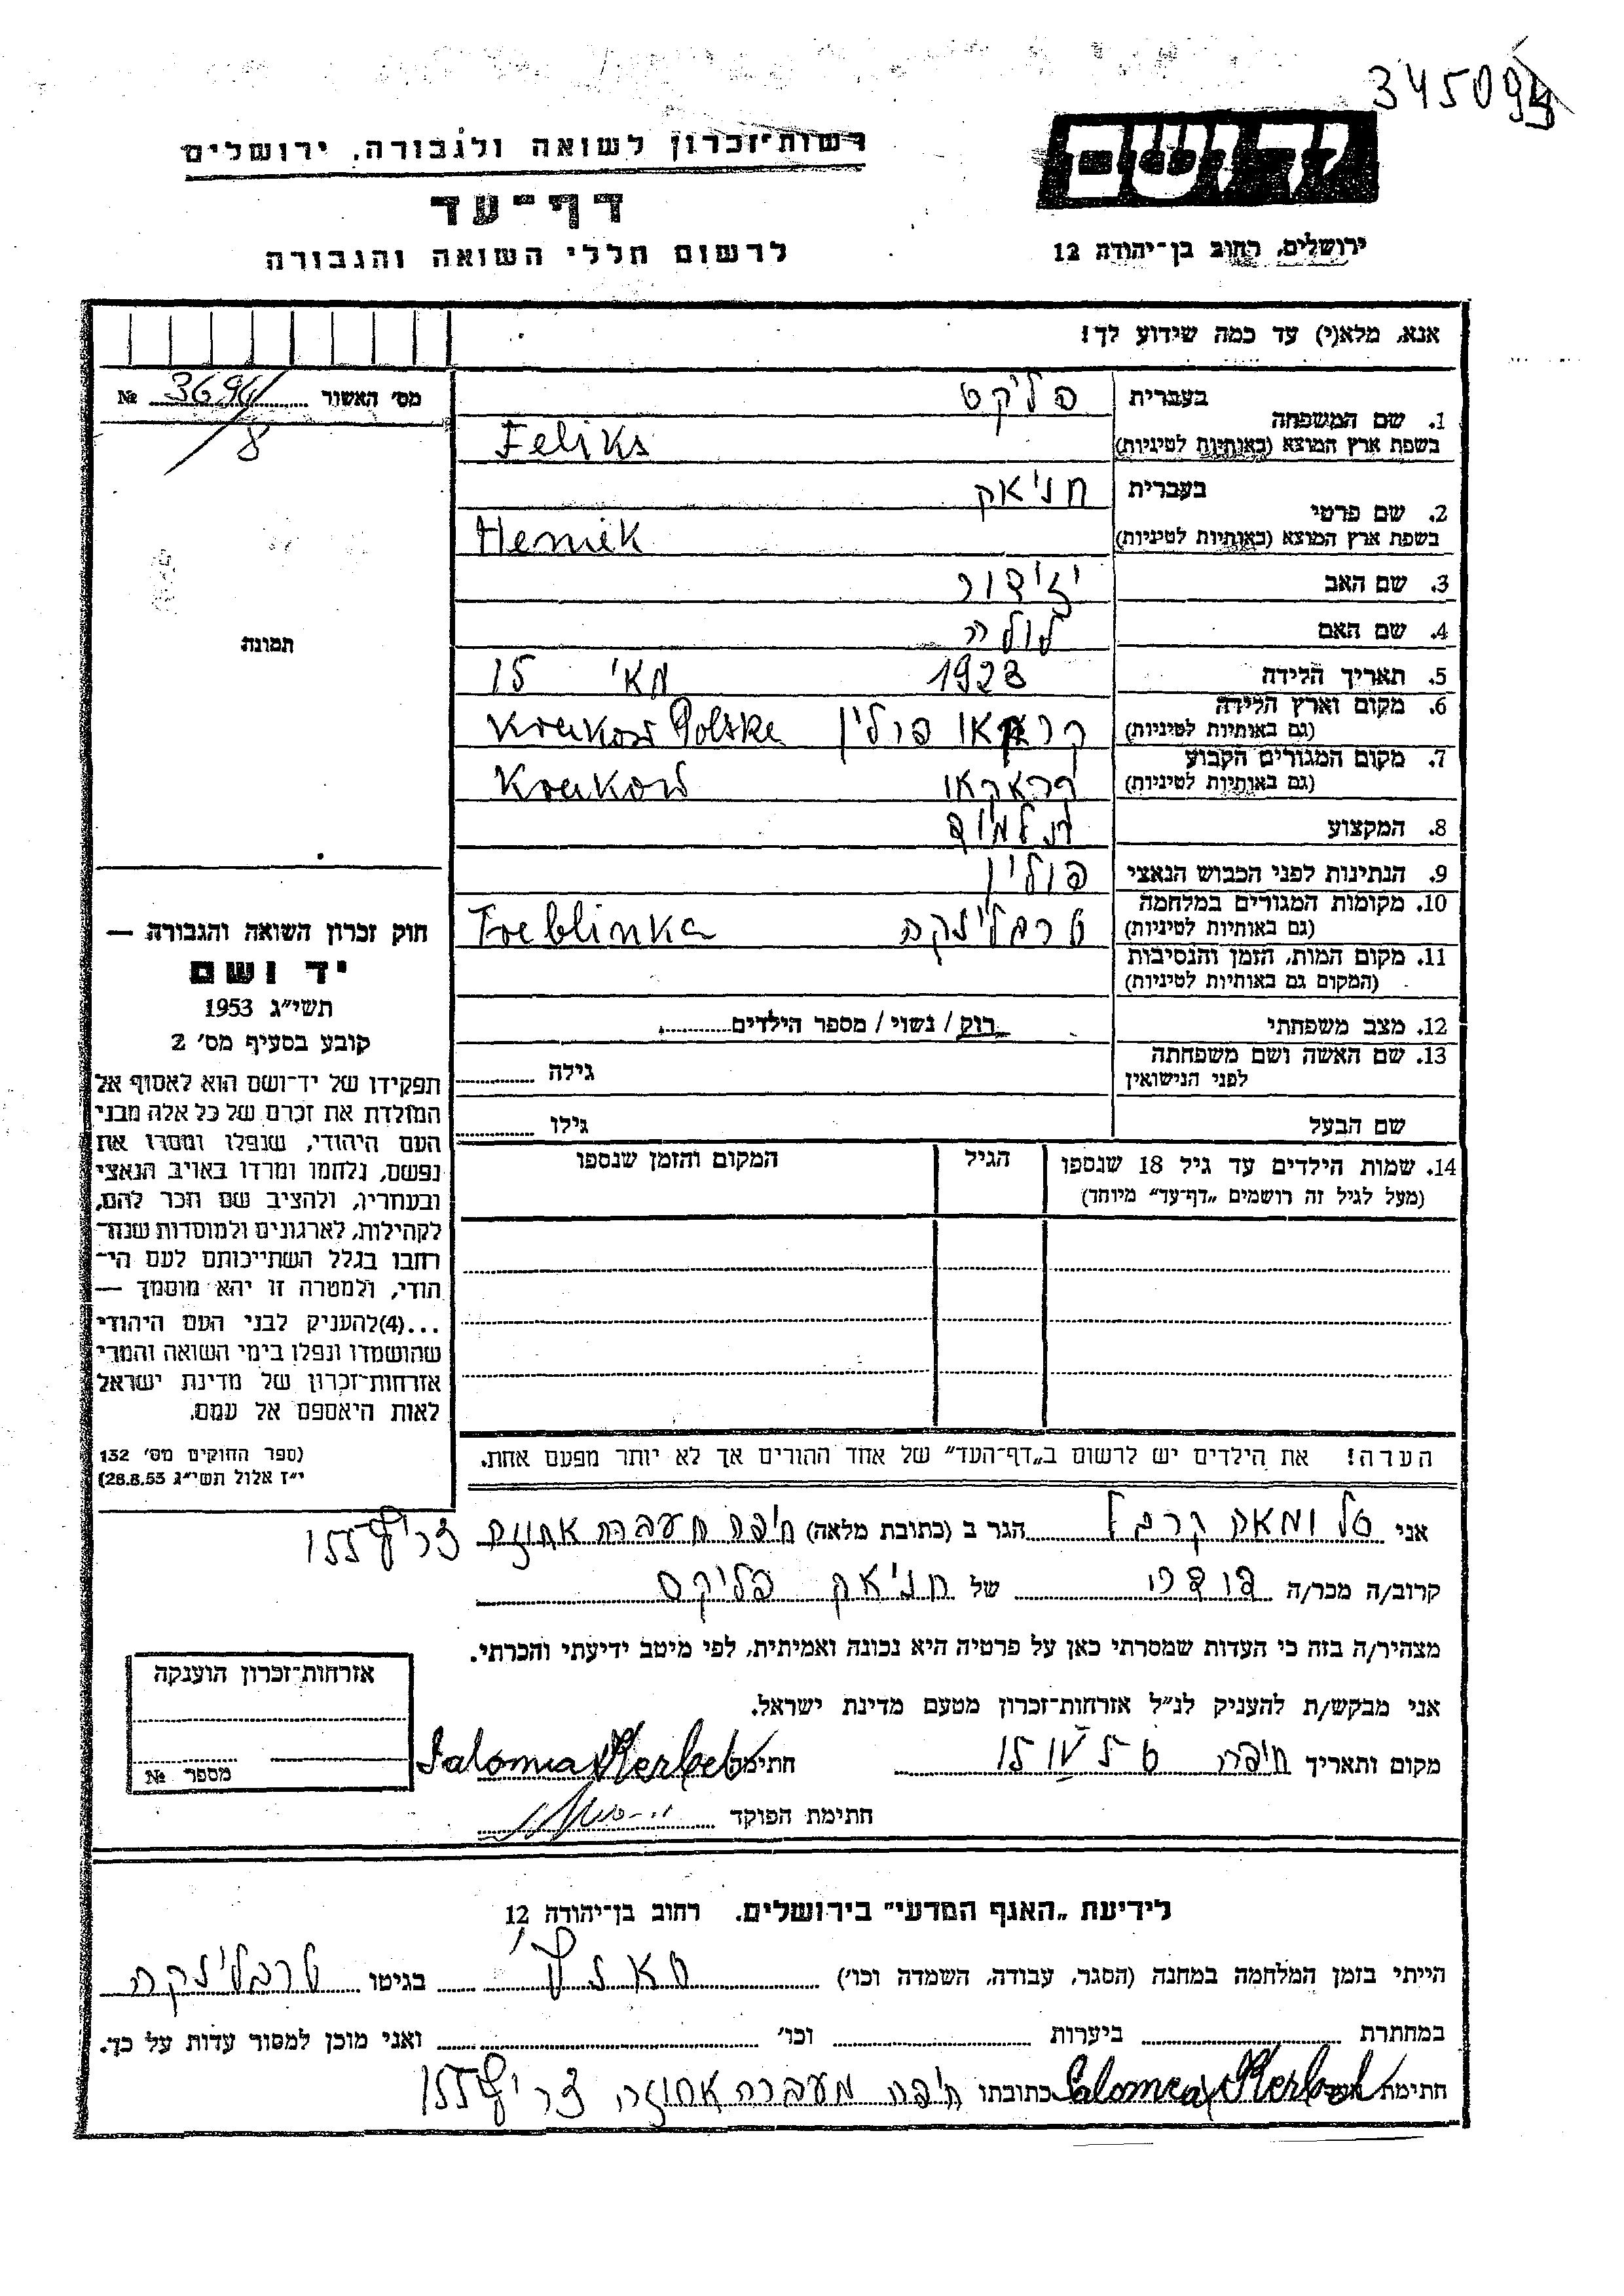 345094
רשות־זכרון לשואה ולגבורה, ירושלים
דף־עד
לרשום חללי השואה והגבורה
יד ושם
ירושלים, רחוב בן־יהודה 12
אנא, מלא(י) עד כמה שידוע לך!
מס׳ האשור № 3694/8
1. שם המשפחה
בעברית פליקס
בשפת ארץ המוצא (באותיות לטיניות) Feliks
2. שם פרטי
בעברית חניאק
בשפת ארץ המוצא (באותיות לטיניות) Heniek
3. שם האב יזידור
4. שם האם לולה
5. תאריך הלידה 1923 מאי 15
6. מקום וארץ הלידה
(גם באותיות לטיניות) קראקאו פולין Krakow Polska
7. מקום המגורים הקבוע
(גם באותיות לטיניות) קראקאו Krakow
8. המקצוע תלמיד
9. הנתינות לפני הכבוש הנאצי פולין
10. מקומות המגורים במלחמה
(גם באותיות לטיניות) טרבלינקה Treblinka
11. מקום המות, הזמן והנסיבות
(המקום גם באותיות לטיניות)
12. מצב משפחתי רוק / נשוי / מספר הילדים
13. שם האשה ושם משפחתה
לפני הנישואין גילה
שם הבעל גילו
14. שמות הילדים עד גיל 18 שנספו הגיל המקום והזמן שנספו
(מעל לגיל זה רושמים „דף־עד״ מיוחד)
הערה! את הילדים יש לרשום ב„דף־העד״ של אחד ההורים אך לא יותר מפעם אחת.
תמונה
חוק זכרון השואה והגבורה —
יד ושם
תשי״ג 1953
קובע בסעיף מס׳ 2
תפקידו של יד־ושם הוא לאסוף אל
המולדת את זכרם של כל אלה מבני
העם היהודי, שנפלו ומסרו את
נפשם, נלחמו ומרדו באויב הנאצי
ובעוזריו, ולהציב שם וזכר להם,
לקהילות, לארגונים ולמוסדות שנח־
רחבו בגלל השתייכותם לעם הי־
הודי, ולמטרה זו יהא מוסמך —
...(4)להעניק לבני העם היהודי
שהושמדו ונפלו בימי השואה והמרי
אזרחות־זכרון של מדינת ישראל
לאות היאספם אל עמם.
(ספר החוקים מס׳ 132
י״ז אלול תשי״ג 28.8.53)
אני קרבל הגר ב (כתובת מלאה) חיפה מעברה אחוזה צריף 155
קרוב/ה מכר/ה דודה של חניאק פליקס
מצהיר/ה בזה כי העדות שמסרתי כאן על פרטיה היא נכונה ואמיתית, לפי מיטב ידיעתי והכרתי.
אני מבקש/ת להעניק לנ״ל אזרחות־זכרון מטעם מדינת ישראל.
מקום ותאריך חיפה 15 IV חתימה Salomea Kerbel
חתימת הפוקד
אזרחות־זכרון הוענקה
מספר №
לידיעת „האגף המדעי״ בירושלים. רחוב בן־יהודה 12
הייתי בזמן המלחמה במחנה (הסגר, עבודה, השמדה וכו׳) בגיטו טרבלינקה
במחתרת ביערות וכו׳ ואני מוכן למסור עדות על כך.
חתימת Salomea Kerbel כתובתו חיפה מעברה אחוזה צריף 155